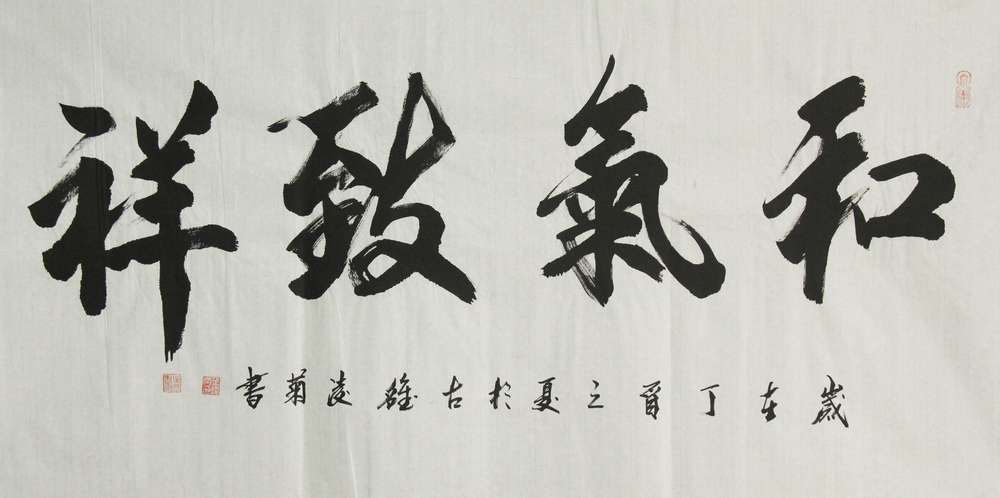 和氣致祥
歲在丁酉之夏於古雒凌菊書